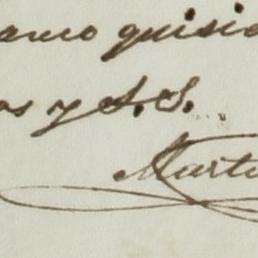 amo quisi
os y S. S.
Marti